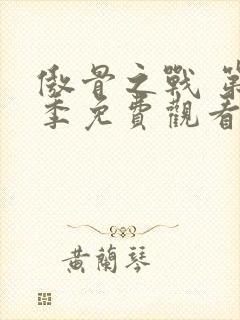 傲骨之戰 第
季免費觀看
黃蘭琴